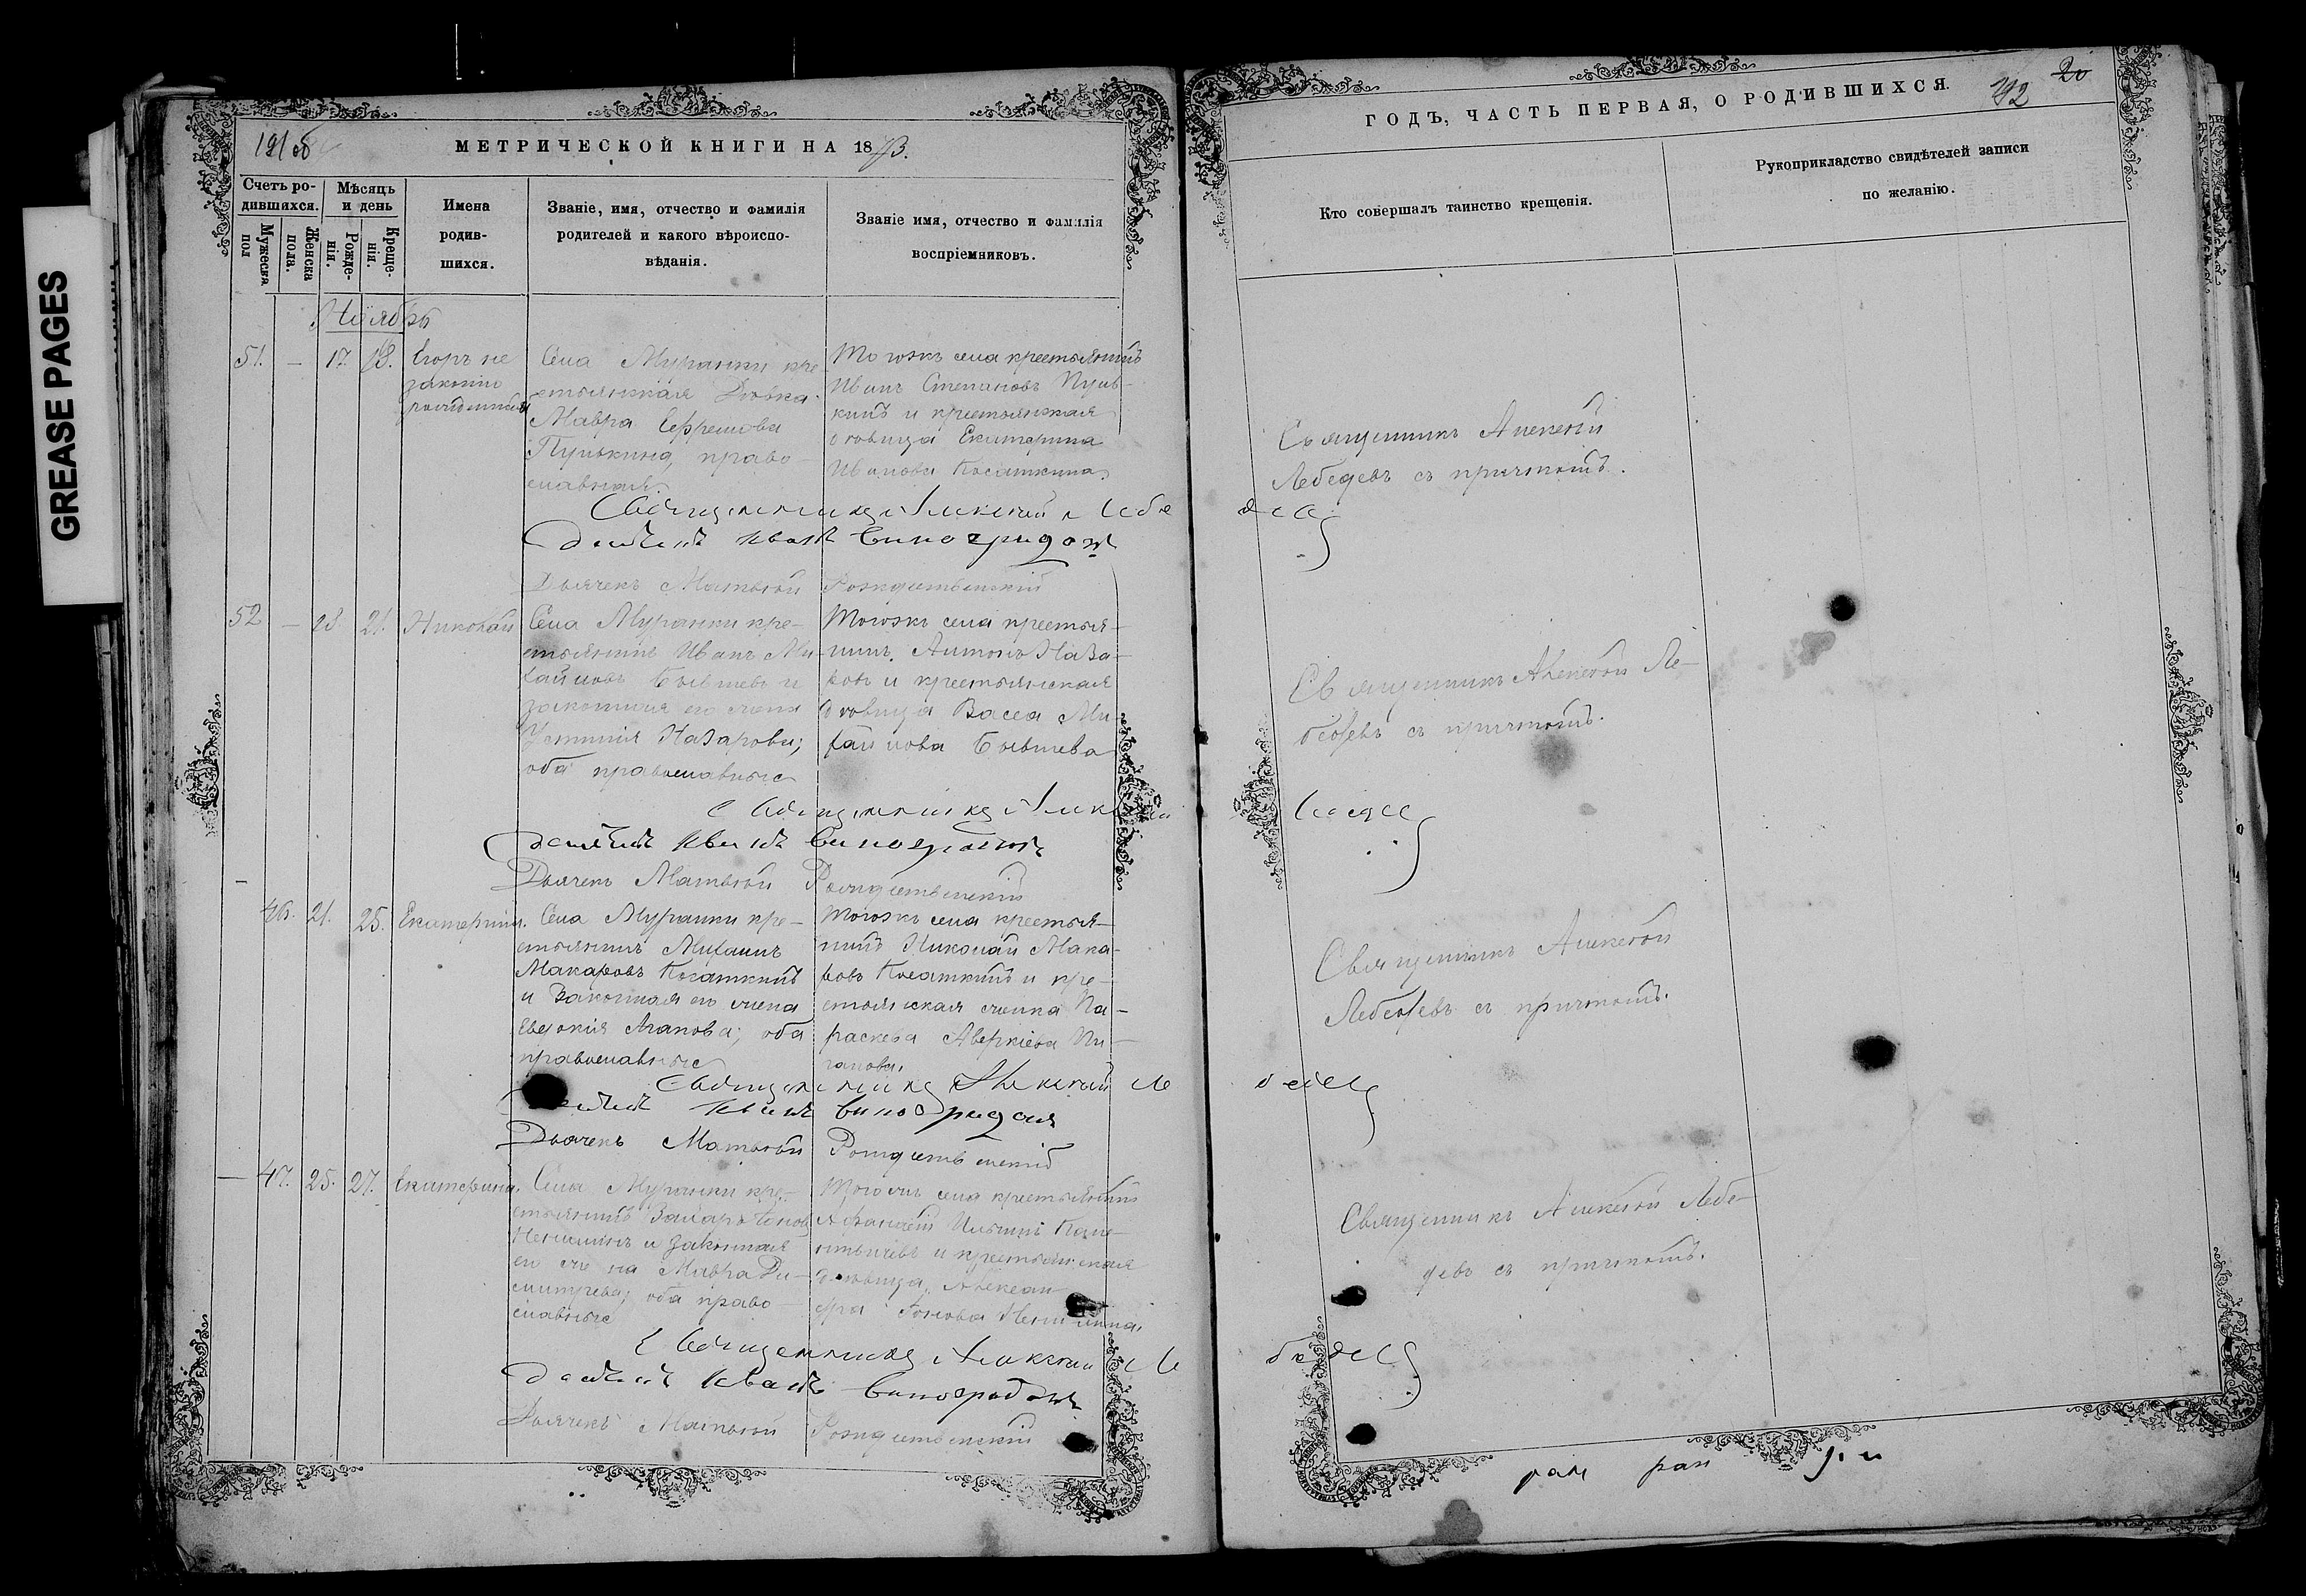 GREASE PAGES
МЕТРИЧЕСКОЙ КНИГИ НА 1873.
Счетъ ро-
дившихся.
Мужеска
пол
Женска
пола.
Мѣсяцъ
и день
Рожде-
нія.
Креще-
нія.
Имена
родив-
шихся.
Званіе, имя, отчество и фамилія
родителей и какого вѣроиспо-
вѣданія.
Званіе имя, отчество и фамилія
воспріемниковъ.
Ноябрь
51. — 17. 18. Егоръ не
законно
рожденный
Села Муранки кре
стьянская дѣвка
Мавра Ефремова
Пулькина, право-
славная.
Тогожъ села крестьянинъ
Иванъ Степановъ Пуль-
кинъ и крестьянская
дѣвица Екатерина
Иванова Касаткина.
Священникъ Алексѣй Лебе
девъ
Иванъ Виноградовъ
Дьячекъ Матвѣй Рождественскій
52 — 21. Николай
Села Муранки кре-
стьянинъ Иванъ Ми-
хайловъ Бывшевъ и
законная его жена
Устинія Назарова;
оба православные
Тогожъ села крестья-
нинъ Антонъ Наза-
ровъ и крестьянская
дѣвица Васса Ми-
хайлова Бывшева
Священникъ Алексѣй
Лебедевъ
Иванъ Виноградовъ
Дьячекъ Матвѣй Рождественскій
— 46. 21. 25. Екатерина.
Села Муранки кре-
стьянинъ Михаилъ
Макаровъ Касаткинъ
и законная его жена
Евдокія Агапова; оба
православные
Тогожъ села крестья-
нинъ Николай Мака-
ровъ Касаткинъ и кре-
стьянская женка Па-
раскева Аверкіева
Священникъ Алексѣй Ле
бедевъ
Иванъ Виноградовъ
Дьячекъ Матвѣй Рождественскій
— 47. 25. 27. Екатерина.
Села Муранки кре-
стьянинъ Захаръ
и законная
его жена Мавра Ди-
митріева; оба право-
славные
Тогожъ села крестьянинъ
Афанасій Ильинъ
и крестьянская
дѣвица Алексан-
дра
Священникъ Алексѣй Ле
бедевъ
Иванъ Виноградовъ
Дьячекъ Матвѣй Рождественскій
ГОДЪ, ЧАСТЬ ПЕРВАЯ, О РОДИВШИХСЯ.
20
Кто совершалъ таинство крещенія.
Рукоприкладство свидѣтелей записи
по желанію.
Священникъ Алексѣй
Лебедевъ съ причтомъ.
Священникъ Алексѣй Ле-
бедевъ съ причтомъ.
Священникъ Алексѣй
Лебедевъ съ причтомъ.
Священникъ Алексѣй Лебе-
девъ съ причтомъ.